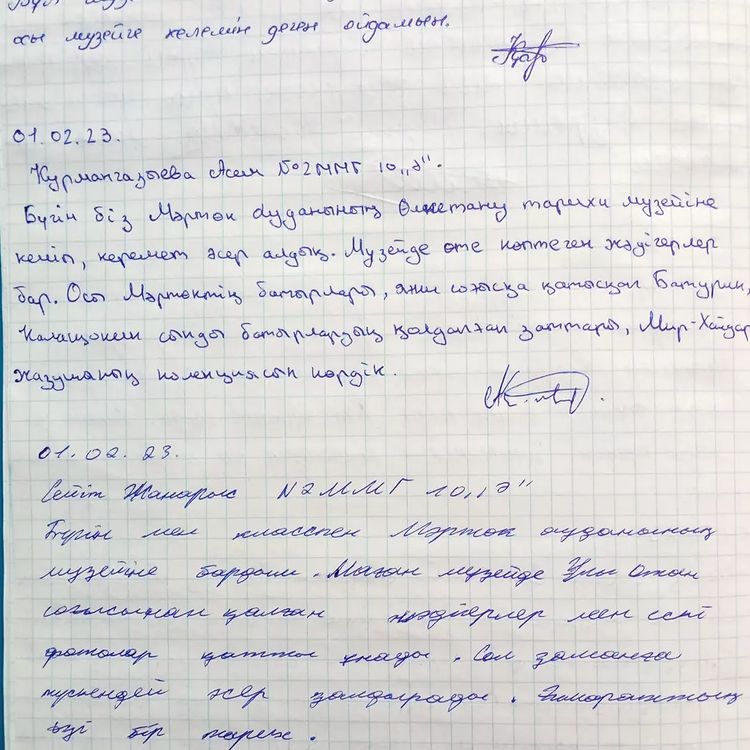 осы музейге келемін деген ойдамын.
01.02.23.
Курмангазыева Асем №2ММГ 10 „Ә".
Бүгін біз Мәртөк ауданының Өлкетану тарихи музейіне
келіп, керемет әсер алдық. Музейде өте көптеген жәдігерлер
бар. Осы Мәртөктің батырлары, яғни соғысқа қатысқан Батурин,
Калащокин сынды батырлардың қолданған заттары, Мир-Хайдар
жазушының коленциясын көрдік.
01.02.23.
Сейіт Жанарыс N2ММГ 10 „Ә"
Бүгін мен класспен Мәртөк ауданының
музейіне бардым. Маған музейде Ұлы Отан
соғысынан қалған жәдігерлер мен ескі
фотолар қатты ұнады. Сол заманға
түскендей әсер қалдырады. Ғимараттың
өзі бір тарих.